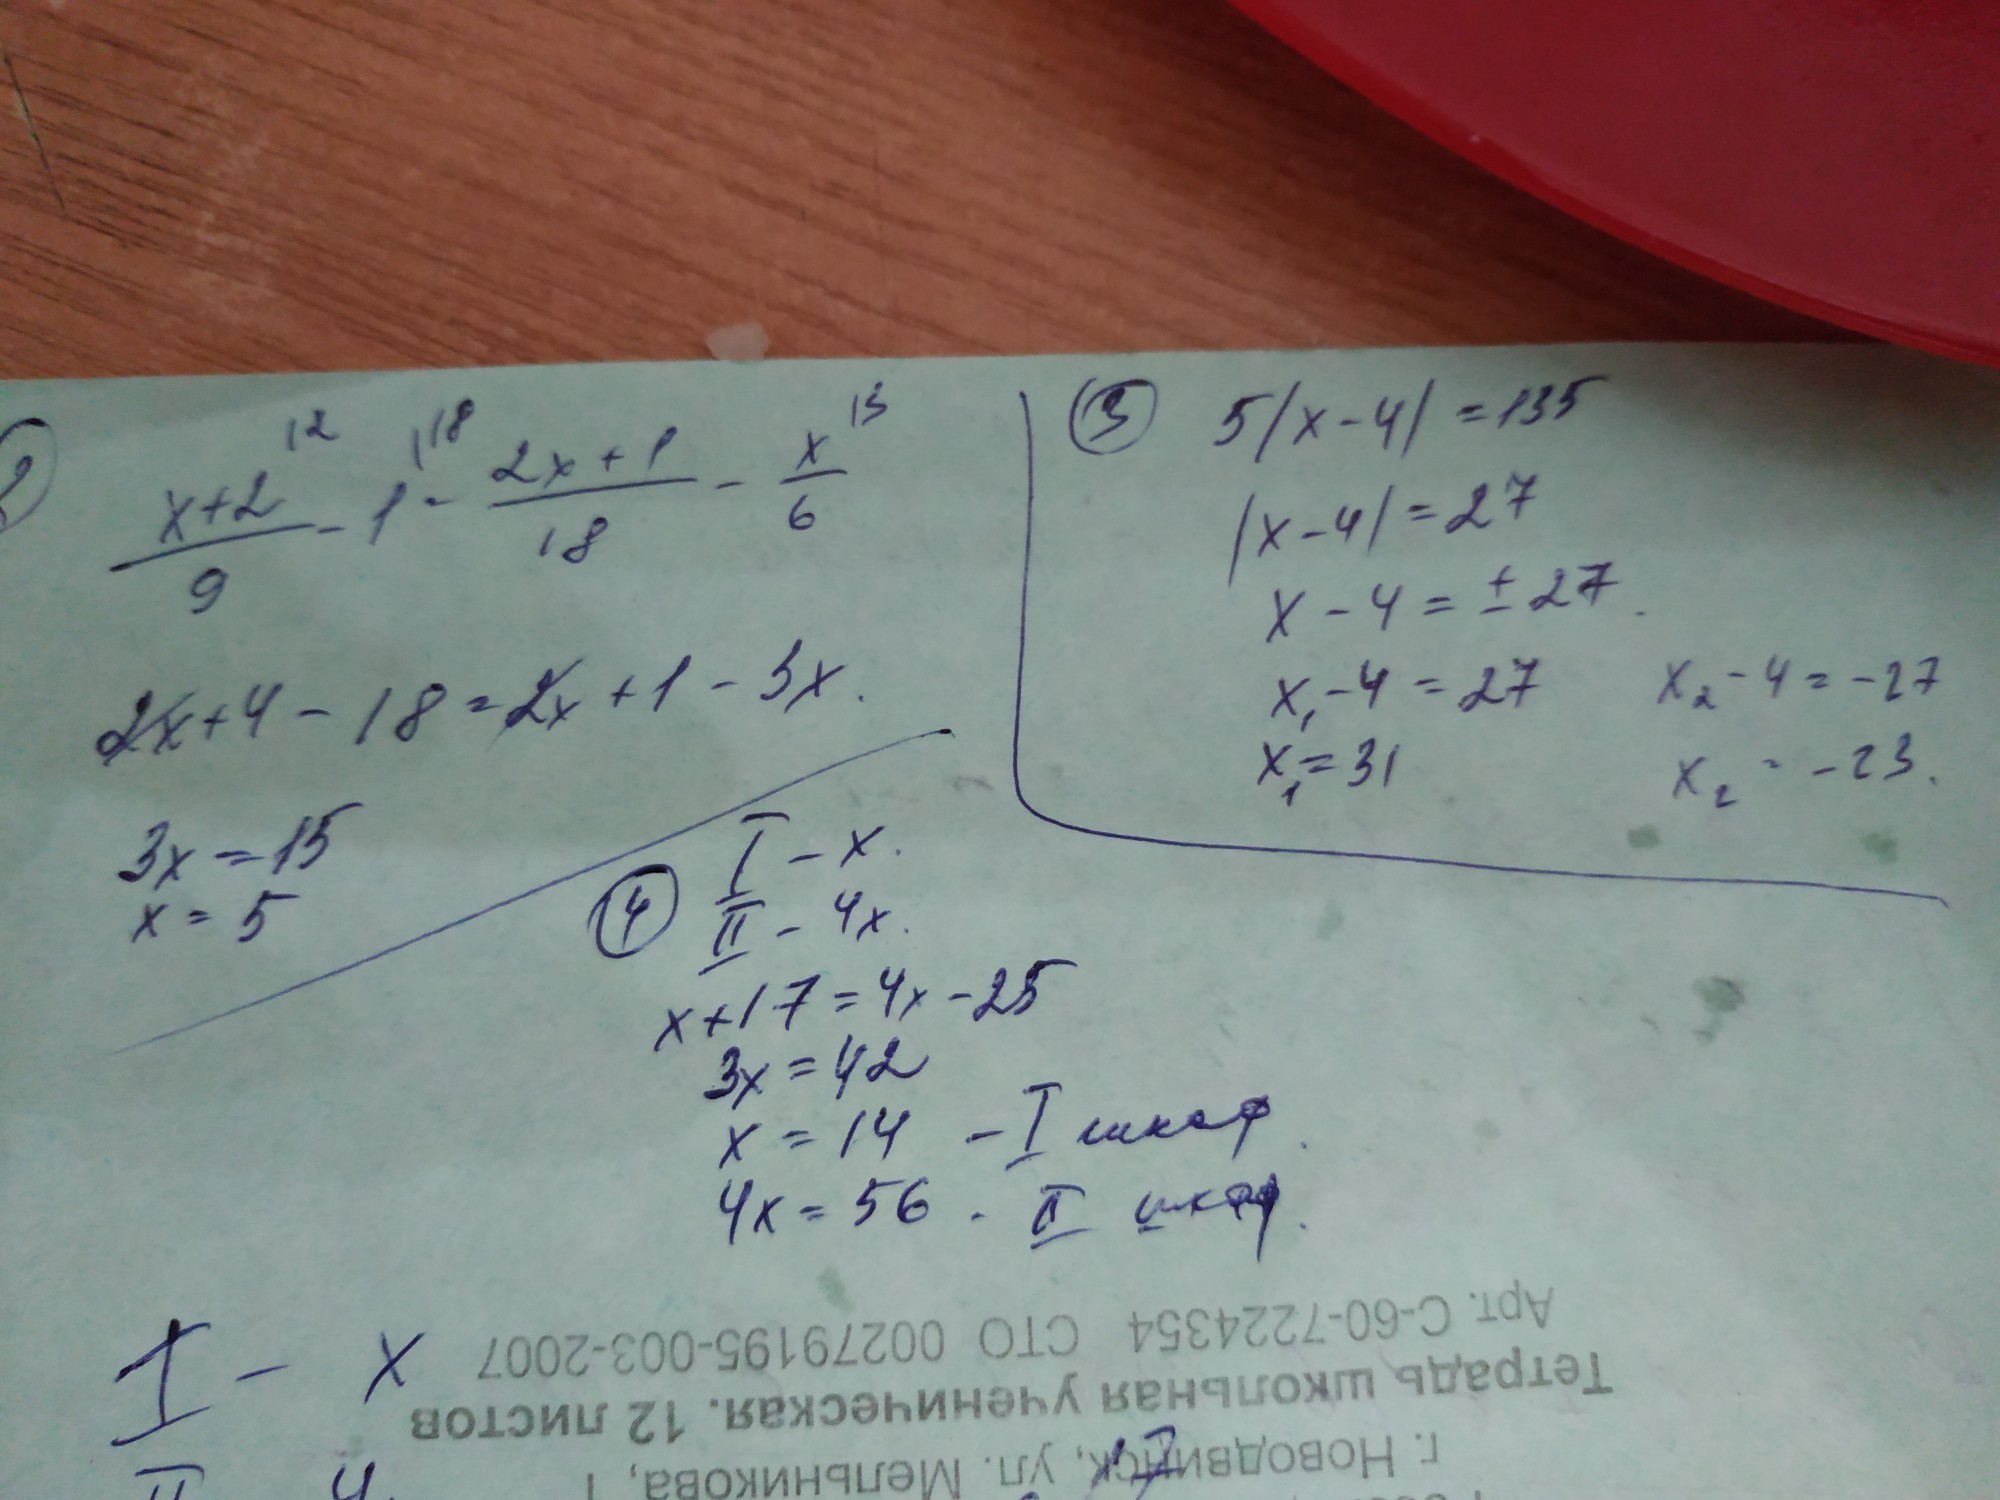 2
x+2/9 |2 - 1 |18 = 2x+1/18 - x/6 |3
2x+4-18=2x+1-3x.
3x=15
x=5
3 5|x-4|=135
|x-4|=27
x-4=±27.
x₁-4=27 x₂-4=-27
x₁=31 x₂=-23.
4 I - x.
II - 4x.
x+17=4x-25
3x=42
x=14 - I шкаф.
4x=56 - II шкаф.
I - x
II 4
г. Новодвинск, ул. Мельникова, 1
Тетрадь школьная ученическая. 12 листов
Арт. С-60-7224354 СТО 00279195-003-2007